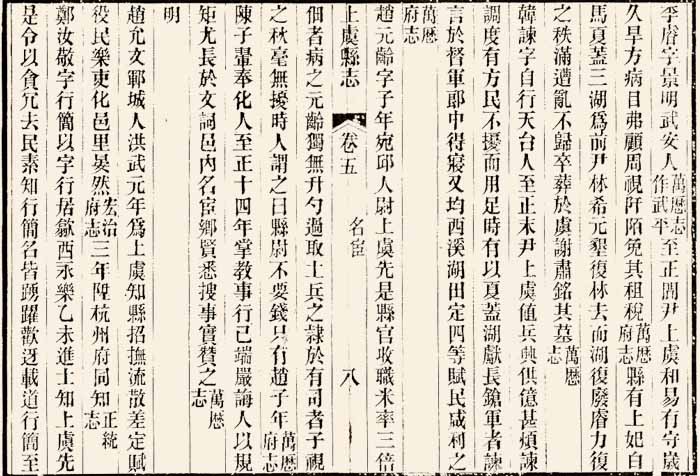 李睿字景明武安人萬歷志作武平至正間尹上虞和易有守歲
久旱方病目弗顧周視阡陌免其租稅萬歷府志縣有上妃白
馬夏蓋三湖為前尹林希元墾復林去而湖復廢睿力復
之秩滿遭亂不歸卒葬於虞謝肅銘其墓萬歷志
韓諫字自行天台人至正末尹上虞值兵興供億甚煩諫
調度有方民不擾而用足時有以夏蓋湖獻長鎗軍者諫
言於督軍郎中得寢又均西溪湖田定四等賦民咸利之
萬歷府志
趙元齡字子年宛邱人尉上虞先是縣官收職米率三倍
上虞縣志 卷五 名宦 八
佃者病之元齡獨無升勺過取士兵之隸於有司者子視
之秋毫無擾時人謂之曰縣尉不要錢只有趙子年萬歷府志
陳子翬奉化人至正十四年掌教事行己端嚴誨人以規
矩尤長於文詞邑內名宦鄉賢悉搜事實贊之萬歷志
明
趙允文鄆城人洪武元年為上虞知縣招撫流散差定賦
役民樂吏化邑里晏然宏治府志三年陞杭州府同知正統志
鄭汝敬字行簡以字行居歙西永樂乙未進士知上虞先
是令以貪冗去民素知行簡名皆踴躍歡迓載道行簡至